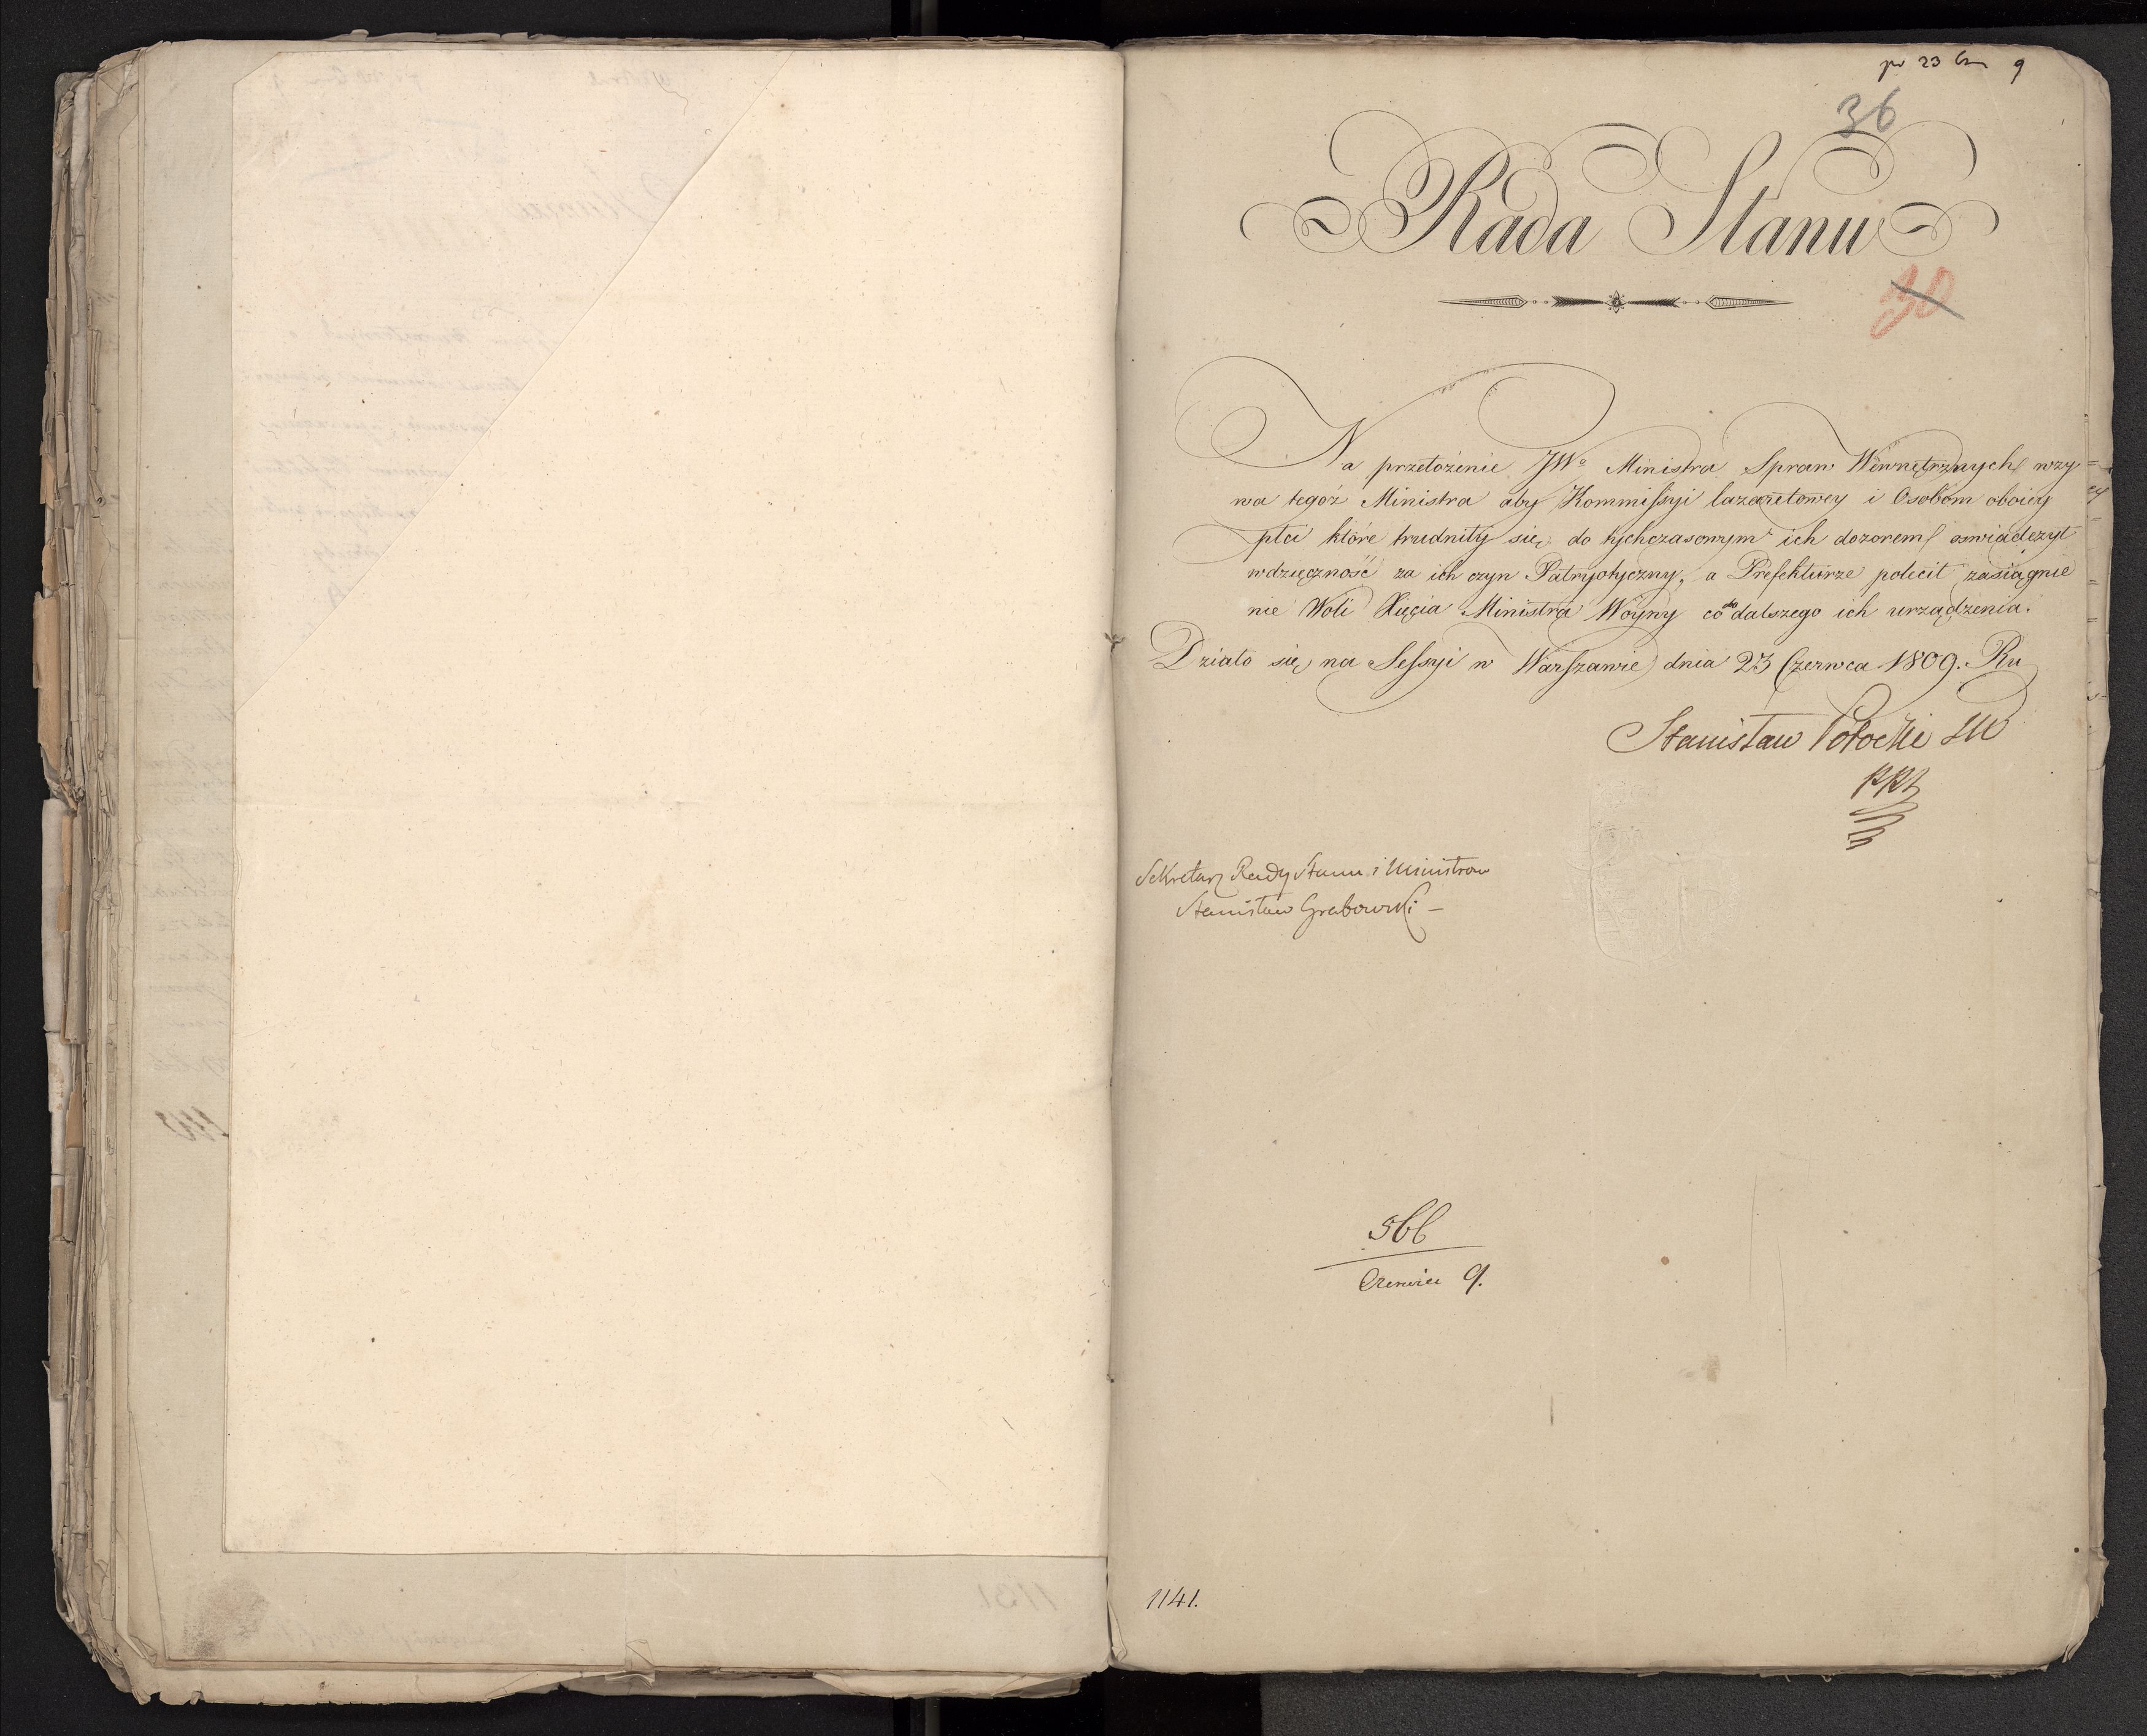 pr 23 Cze 9
36
Rada Stanu
30
Na przełożenie JWo Ministra Spraw Wewnętrznych wzy=
wa tegoż Ministra aby Kommissyi lazaretowey i Osobom oboiey
płci które trudniły się do tychczasowym ich dozorem oswiadczył
wdzięczność za ich czyn Patryotyczny, a Prefekturze polecił zasiągnie
nie Woli Xięcia Ministra Woyny co do dalszego ich urządzenia.
Działo się na Sessyi w Warszawie dnia 23 Czerwca 1809. Ru
Stanisław Potocki
Sekretarz Rady Stanu i Ministrow
Stanisław Grabowski –
566
Czerwiec 9.
1141.